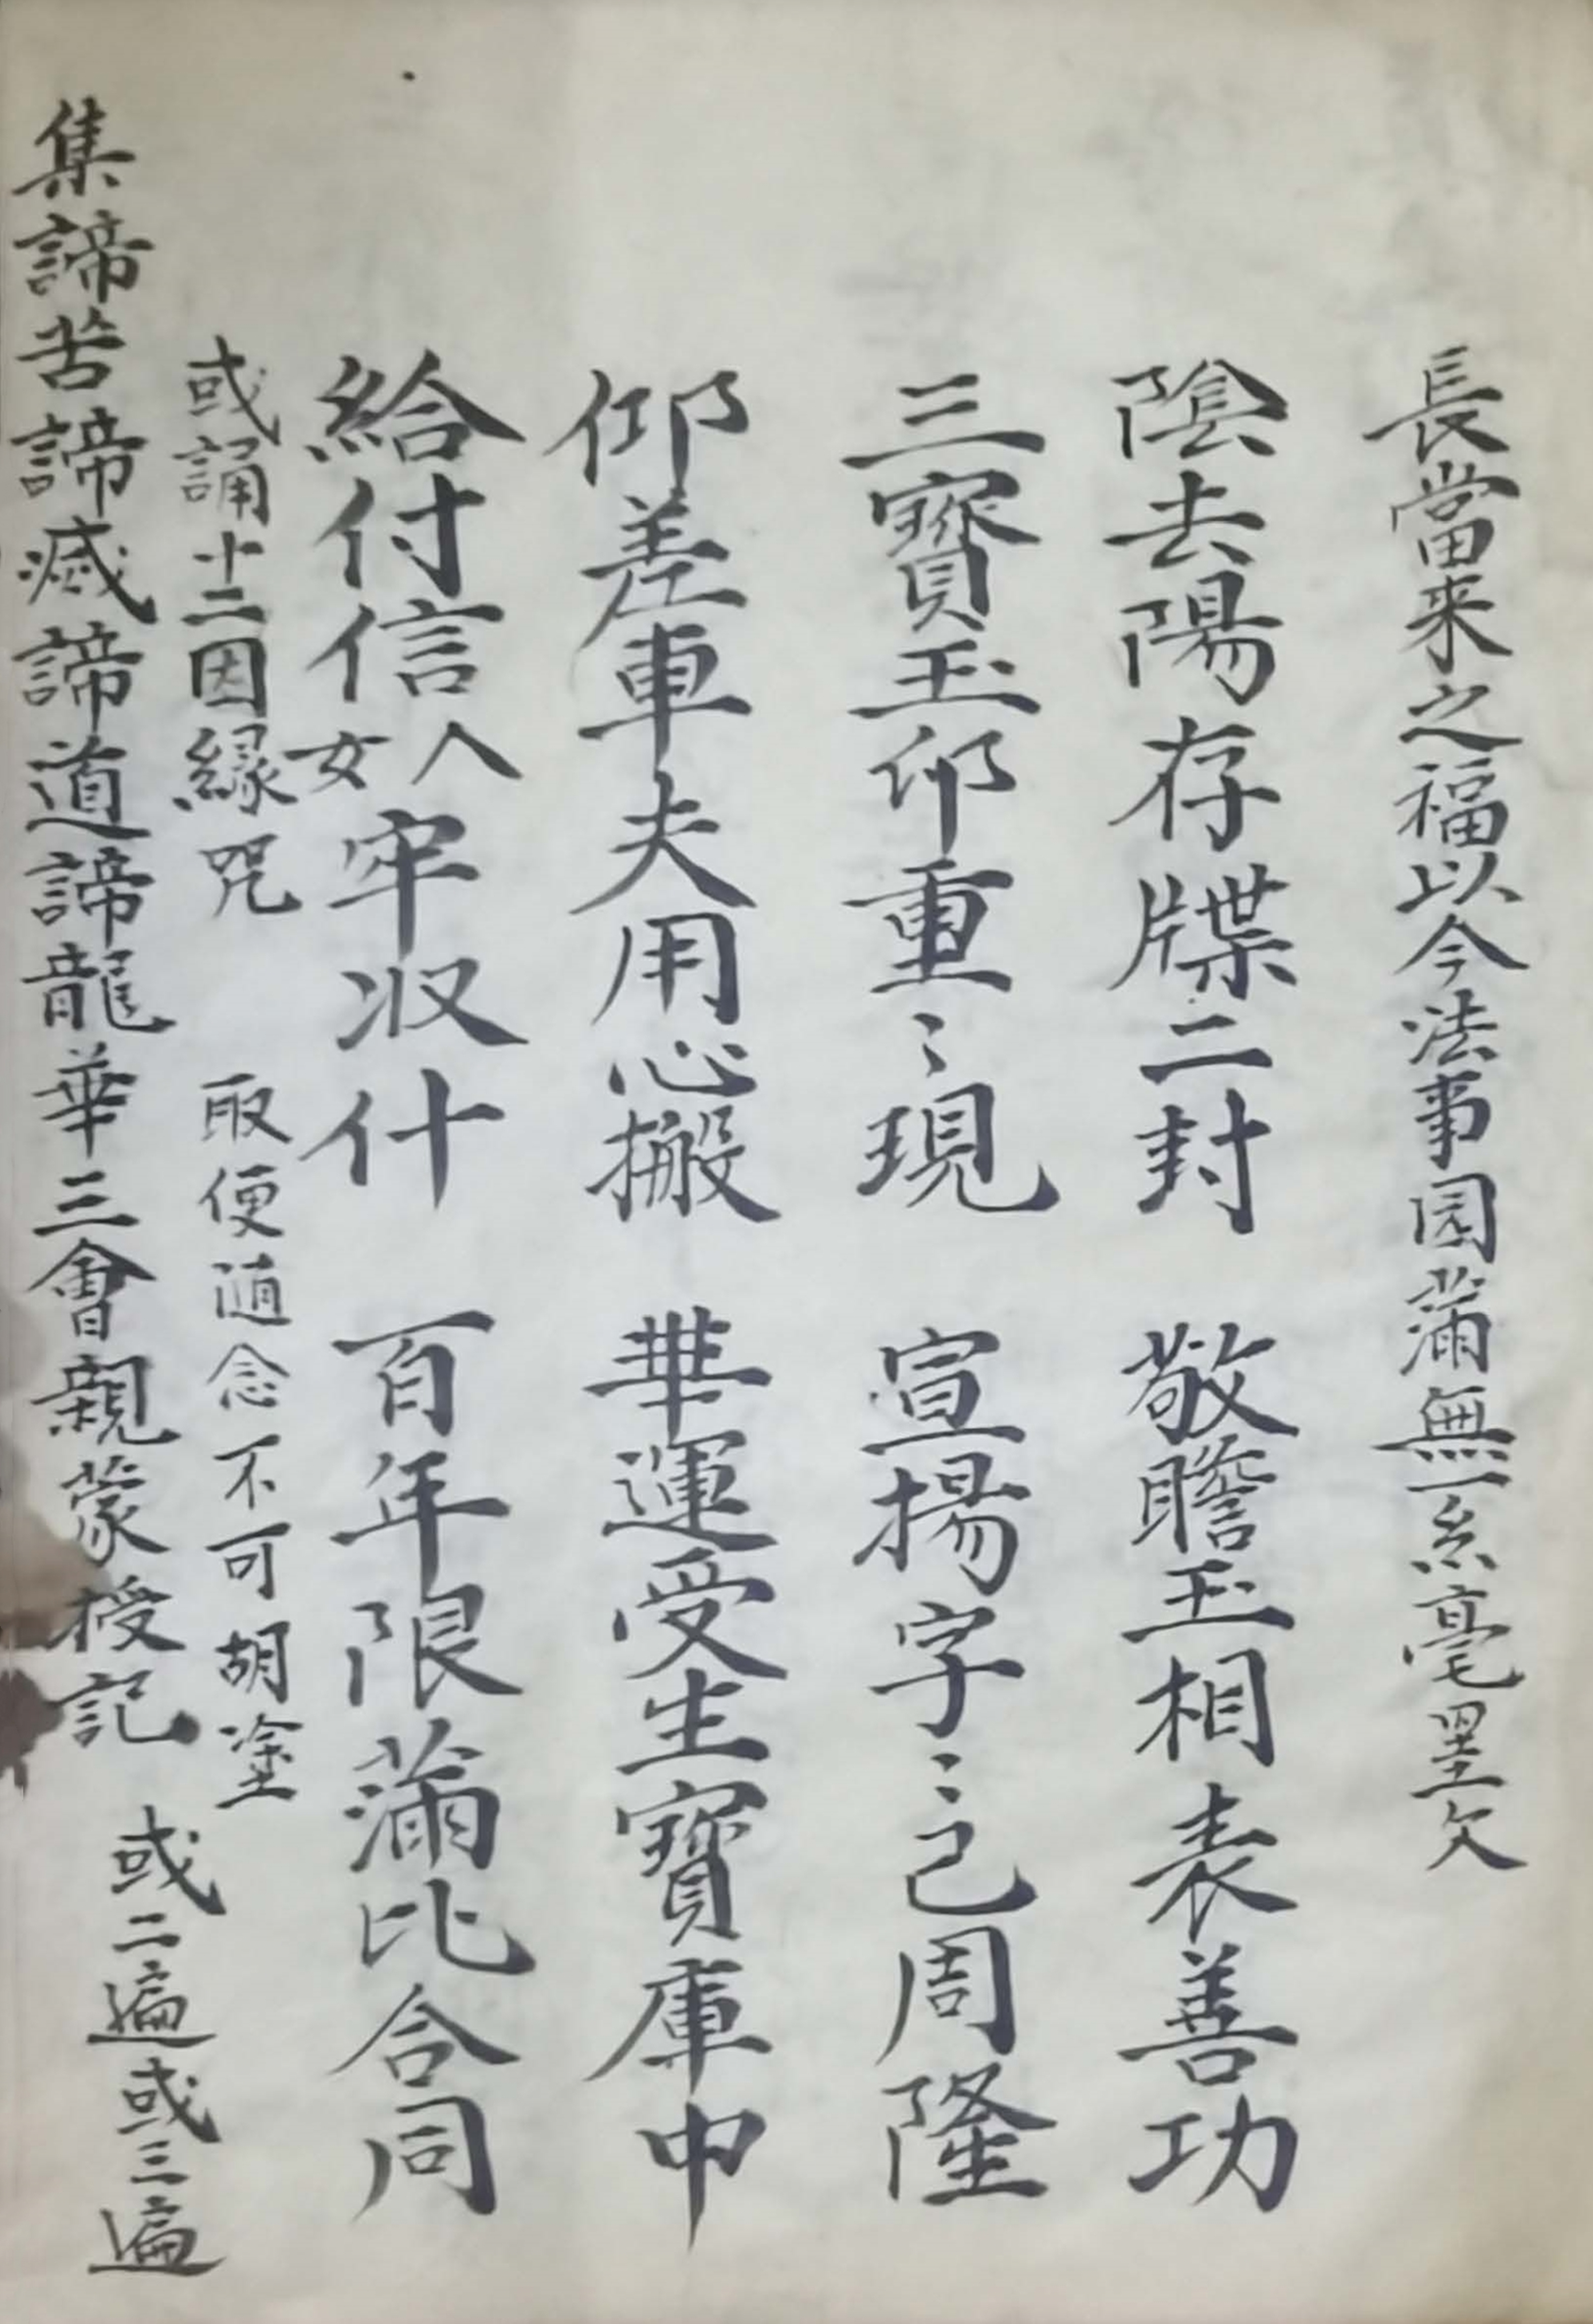 長當来之福以今法事园蒲無一糸毫墨欠
陰去陽存牒二封　敬瞻玉相表善功
三寶玉印重〻現　宣揚字〻己周隆
仰差車夫用心搬　華運受生寶庫中
給付信人女牢收什　百年限蒲比合同
或誦十二因縁咒　取便随念不可胡塗
集諦苦諦滅諦道諦龍華三會親蒙授記　或二遍或三遍